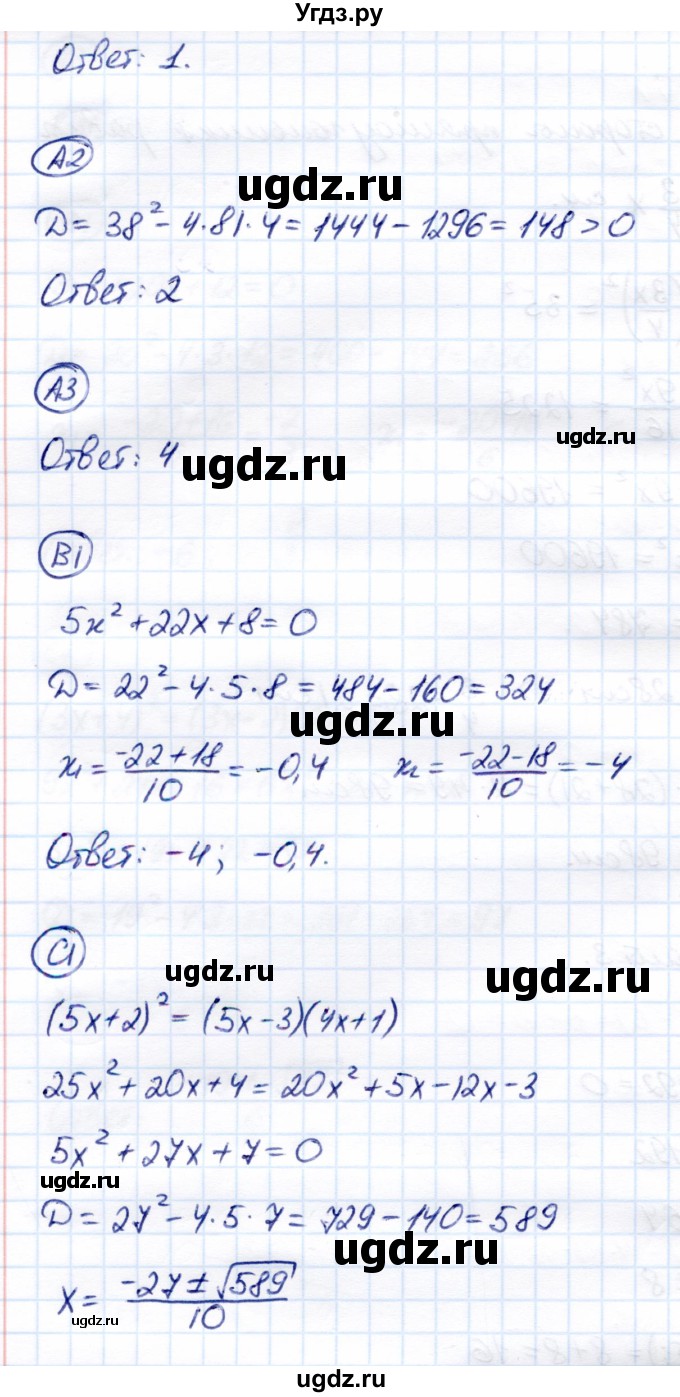 Угдз.ру
Ответ: 1.
A2
ugdz.ru
D = 38² - 4·81·4 = 1444 - 1296 = 148 > 0
Ответ: 2
A3
ugdz.ru
Ответ: 4
ugdz.ru
B1
5x² + 22x + 8 = 0
D = 22² - 4·5·8 = 484 - 160 = 324
ugdz.ru
x₁ = (-22+18)/10 = -0,4 x₂ = (-22-18)/10 = -4
Ответ: -4; -0,4.
C1
ugdz.ru
ugdz.ru
(5x+2)² = (5x-3)(4x+1)
25x² + 20x + 4 = 20x² + 5x - 12x - 3
5x² + 27x + 7 = 0
ugdz.ru
D = 27² - 4·5·7 = 729 - 140 = 589
ugdz.ru
x = (-27 ± √589)/10
ugdz.ru
Угдз.ру